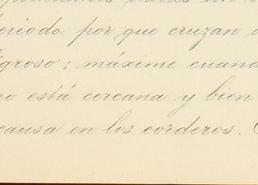 eriodo por que cruzan
groso; máxime cuand
no está cercana y bien
causa en los corderos.